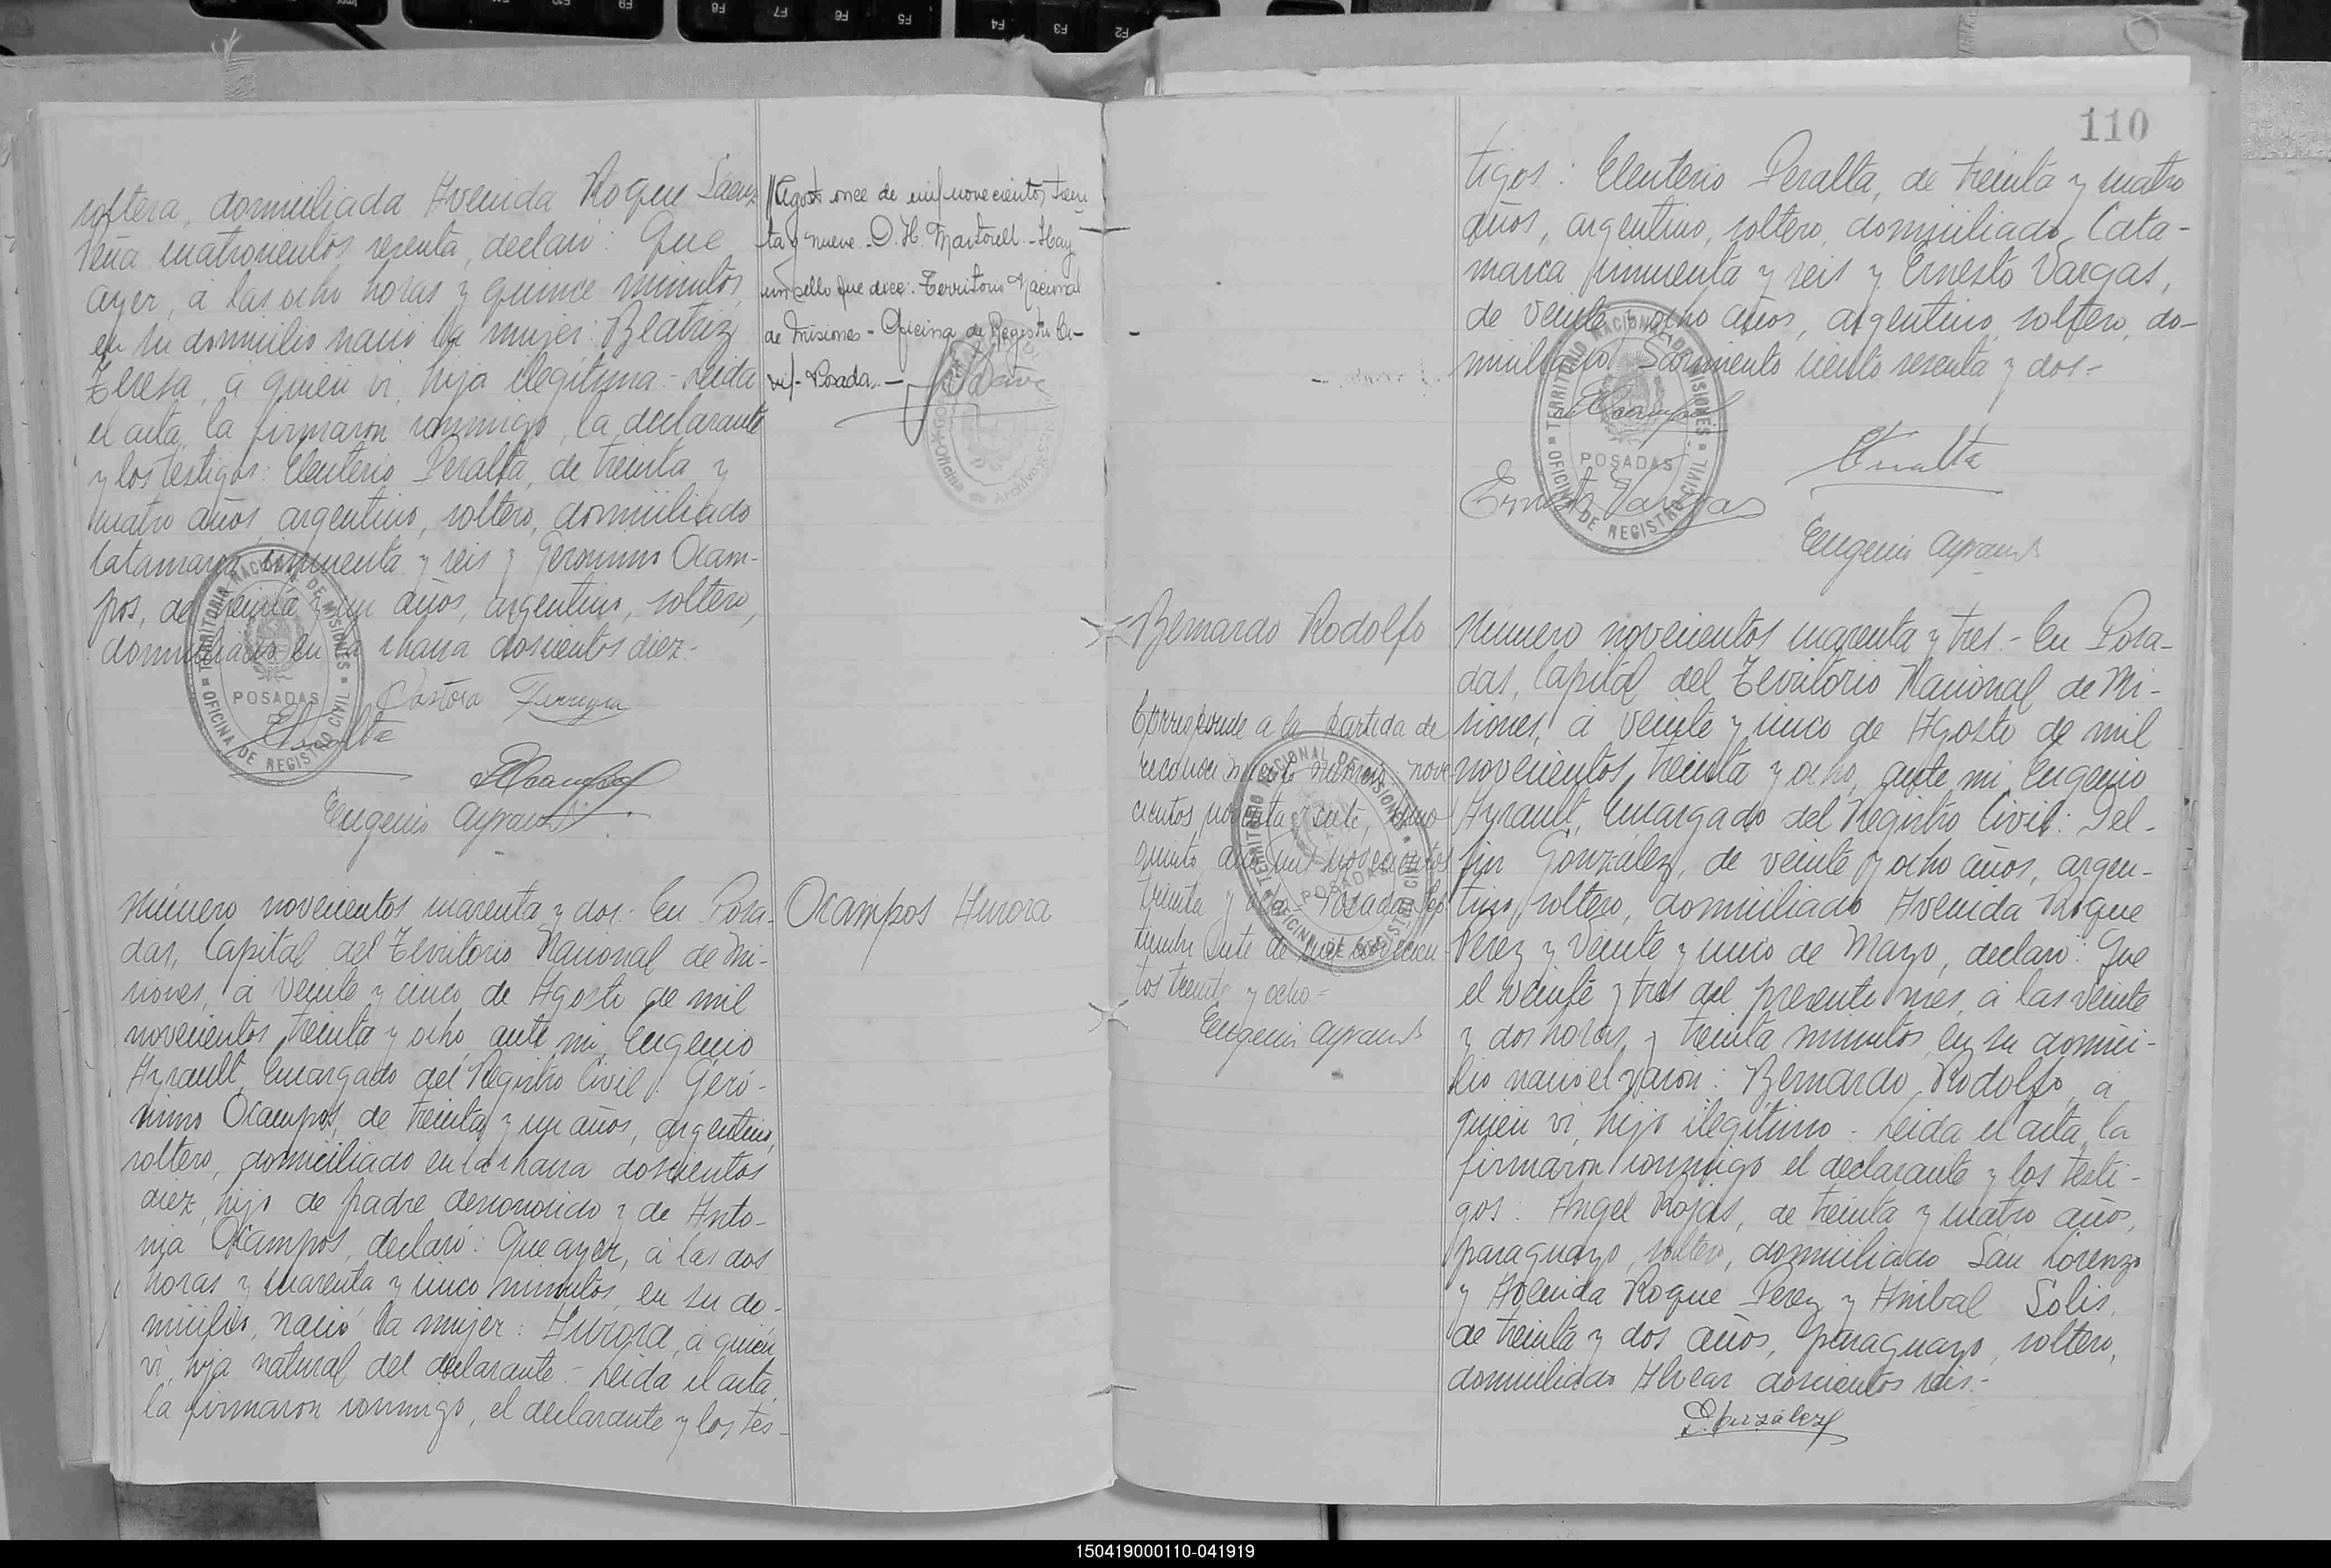 soltera, domiciliada Avenida Roque Saenz
Peña cuatrocientos sesenta, declaró: Que
ayer, á las ocho horas y quince minutos,
en su domicilio nació la mujer: Beatriz
Teresa, a quien vi, hija ilegítima.- Leida
el acta, la firmaron conmigo, la declarante
y los testigos: Eleuterio Peralta, de treinta y
cuatro años, argentino, soltero, domiciliado
Catamarca cincuenta y seis y Geronimo Ocam-
pos, de treinta y un años, argentino, soltero,
domiciliado en la chacra doscientos diez.-
Pastora Ferreyra
EPeralta
GOcampos
Eugenio Ayrault
TERRITORIO NACIONAL DE MISIONES
POSADAS
OFICINA DE REGISTRO CIVIL
Número novecientos cuarenta y dos.- En Posa-
das, Capital del Territorio Nacional de Mi-
siones, á veinte y cinco de Agosto de mil
novecientos treinta y ocho, ante mi, Eugenio
Ayrault, Encargado del Registro Civil: Geró-
nimo Ocampos, de treinta y un años, argentino,
soltero, domiciliado en la chacra doscientos
diez, hijo de padre desconocido y de Anto-
nia Ocampos, declaró: Que ayer, á las dos
horas y cuarenta y cinco minutos, en su do-
micilio, nació la mujer: Aurora, á quien
vi, hija natural del declarante.- Leida el acta,
la firmaron conmigo, el declarante y los tes-
Agosto once de mil novecientos trein
ta y nueve - D. H. Martorell - Hay
un sello que dice: Territorio Nacional
de Misiones - Oficina de Registro Ci-
vil - Posadas.-
Oficina de Archivo
Ocampos Aurora
110
tigos: Eleuterio Peralta, de treinta y cuatro
años, argentino, soltero, domiciliado Cata-
marca cincuenta y seis y Ernesto Vargas,
de veinte y ocho años, argentino, soltero, do-
miciliado Sarmiento ciento sesenta y dos-
GOcampos
EPeralta
Ernesto Vargas
Eugenio Ayrault
TERRITORIO NACIONAL DE MISIONES
POSADAS
OFICINA DE REGISTRO CIVIL
Bernardo Rodolfo
Corresponde a la partida de
reconocimiento número nove
cientos noventa y siete, tomo
quinto, año mil novecientos
treinta y ocho - Posadas Sep
tiembre siete de mil novecien
tos treinta y ocho =
Eugenio Ayrault
TERRITORIO NACIONAL DE MISIONES
POSADAS
OFICINA DE REGISTRO CIVIL
Número novecientos cuarenta y tres.- En Posa-
das, Capital del Territorio Nacional de Mi-
siones, á veinte y cinco de Agosto de mil
novecientos treinta y ocho, ante mi, Eugenio
Ayrault, Encargado del Registro Civil: Del-
fin González, de veinte y ocho años, argen-
tino, soltero, domiciliado Avenida Roque
Perez y Veinte y cinco de Mayo, declaró: Que
el veinte y tres del presente mes, á las veinte
y dos horas y treinta minutos, en su domici-
lio nació el varon: Bernardo Rodolfo, á
quien vi, hijo ilegítimo.- Leida el acta, la
firmaron conmigo el declarante y los testi-
gos: Angel Rojas, de treinta y cuatro años,
paraguayo, soltero, domiciliado San Lorenzo
y Avenida Roque Perez y Anibal Solis,
de treinta y dos años, paraguayo, soltero,
domiciliado Alvear doscientos seis.-
D. González
150419000110-041919